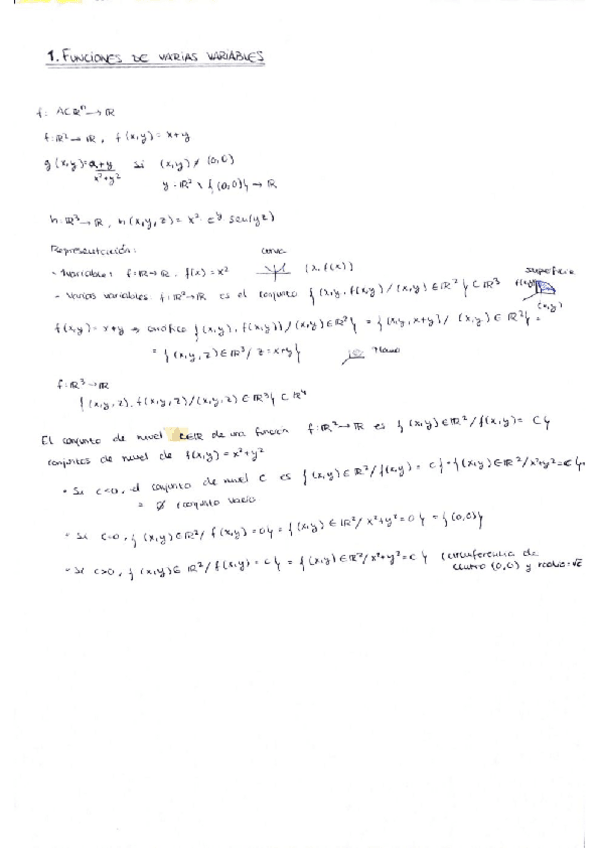 1. FUNCIONES DE VARIAS VARIABLES
f: A⊂ℝⁿ → ℝ
f: ℝ² → ℝ, f(x,y) = x+y
g(x,y) = x+y / x²+y² si (x,y) ≠ (0,0)
g: ℝ² \ {(0,0)} → ℝ
h: ℝ³ → ℝ, h(x,y,z) = x² · eʸ sen(yz)
Representación: curva
- 1 variable: f: ℝ → ℝ, f(x) = x² (x, f(x)) superficie
- Varias variables f: ℝ² → ℝ es el conjunto {(x,y, f(x,y) / (x,y) ∈ ℝ²} ⊂ ℝ³ f(x,y) (x,y)
f(x,y) = x+y → gráfico {(x,y), f(x,y)) / (x,y) ∈ ℝ²} = {(x,y, x+y) / (x,y) ∈ ℝ²} =
= {(x,y,z) ∈ ℝ³ / z = x+y} Plano
f: ℝ³ → ℝ
{(x,y,z), f(x,y,z) / (x,y,z) ∈ ℝ³} ⊂ ℝ⁴
El conjunto de nivel c∈ℝ de una función f: ℝ² → ℝ es {(x,y) ∈ ℝ² / f(x,y) = C}
conjuntos de nivel de f(x,y) = x²+y²
- Si c<0, el conjunto de nivel c es {(x,y) ∈ ℝ² / f(x,y) = c} = {(x,y) ∈ ℝ² / x²+y² = c} =
= ∅ conjunto vacío
- Si c=0, {(x,y) ∈ ℝ² / f(x,y) = 0} = {(x,y) ∈ ℝ² / x²+y² = 0} = {(0,0)}
- Si c>0, {(x,y) ∈ ℝ² / f(x,y) = c} = {(x,y) ∈ ℝ² / x²+y² = c} (circunferencia de
centro (0,0) y radio = √c